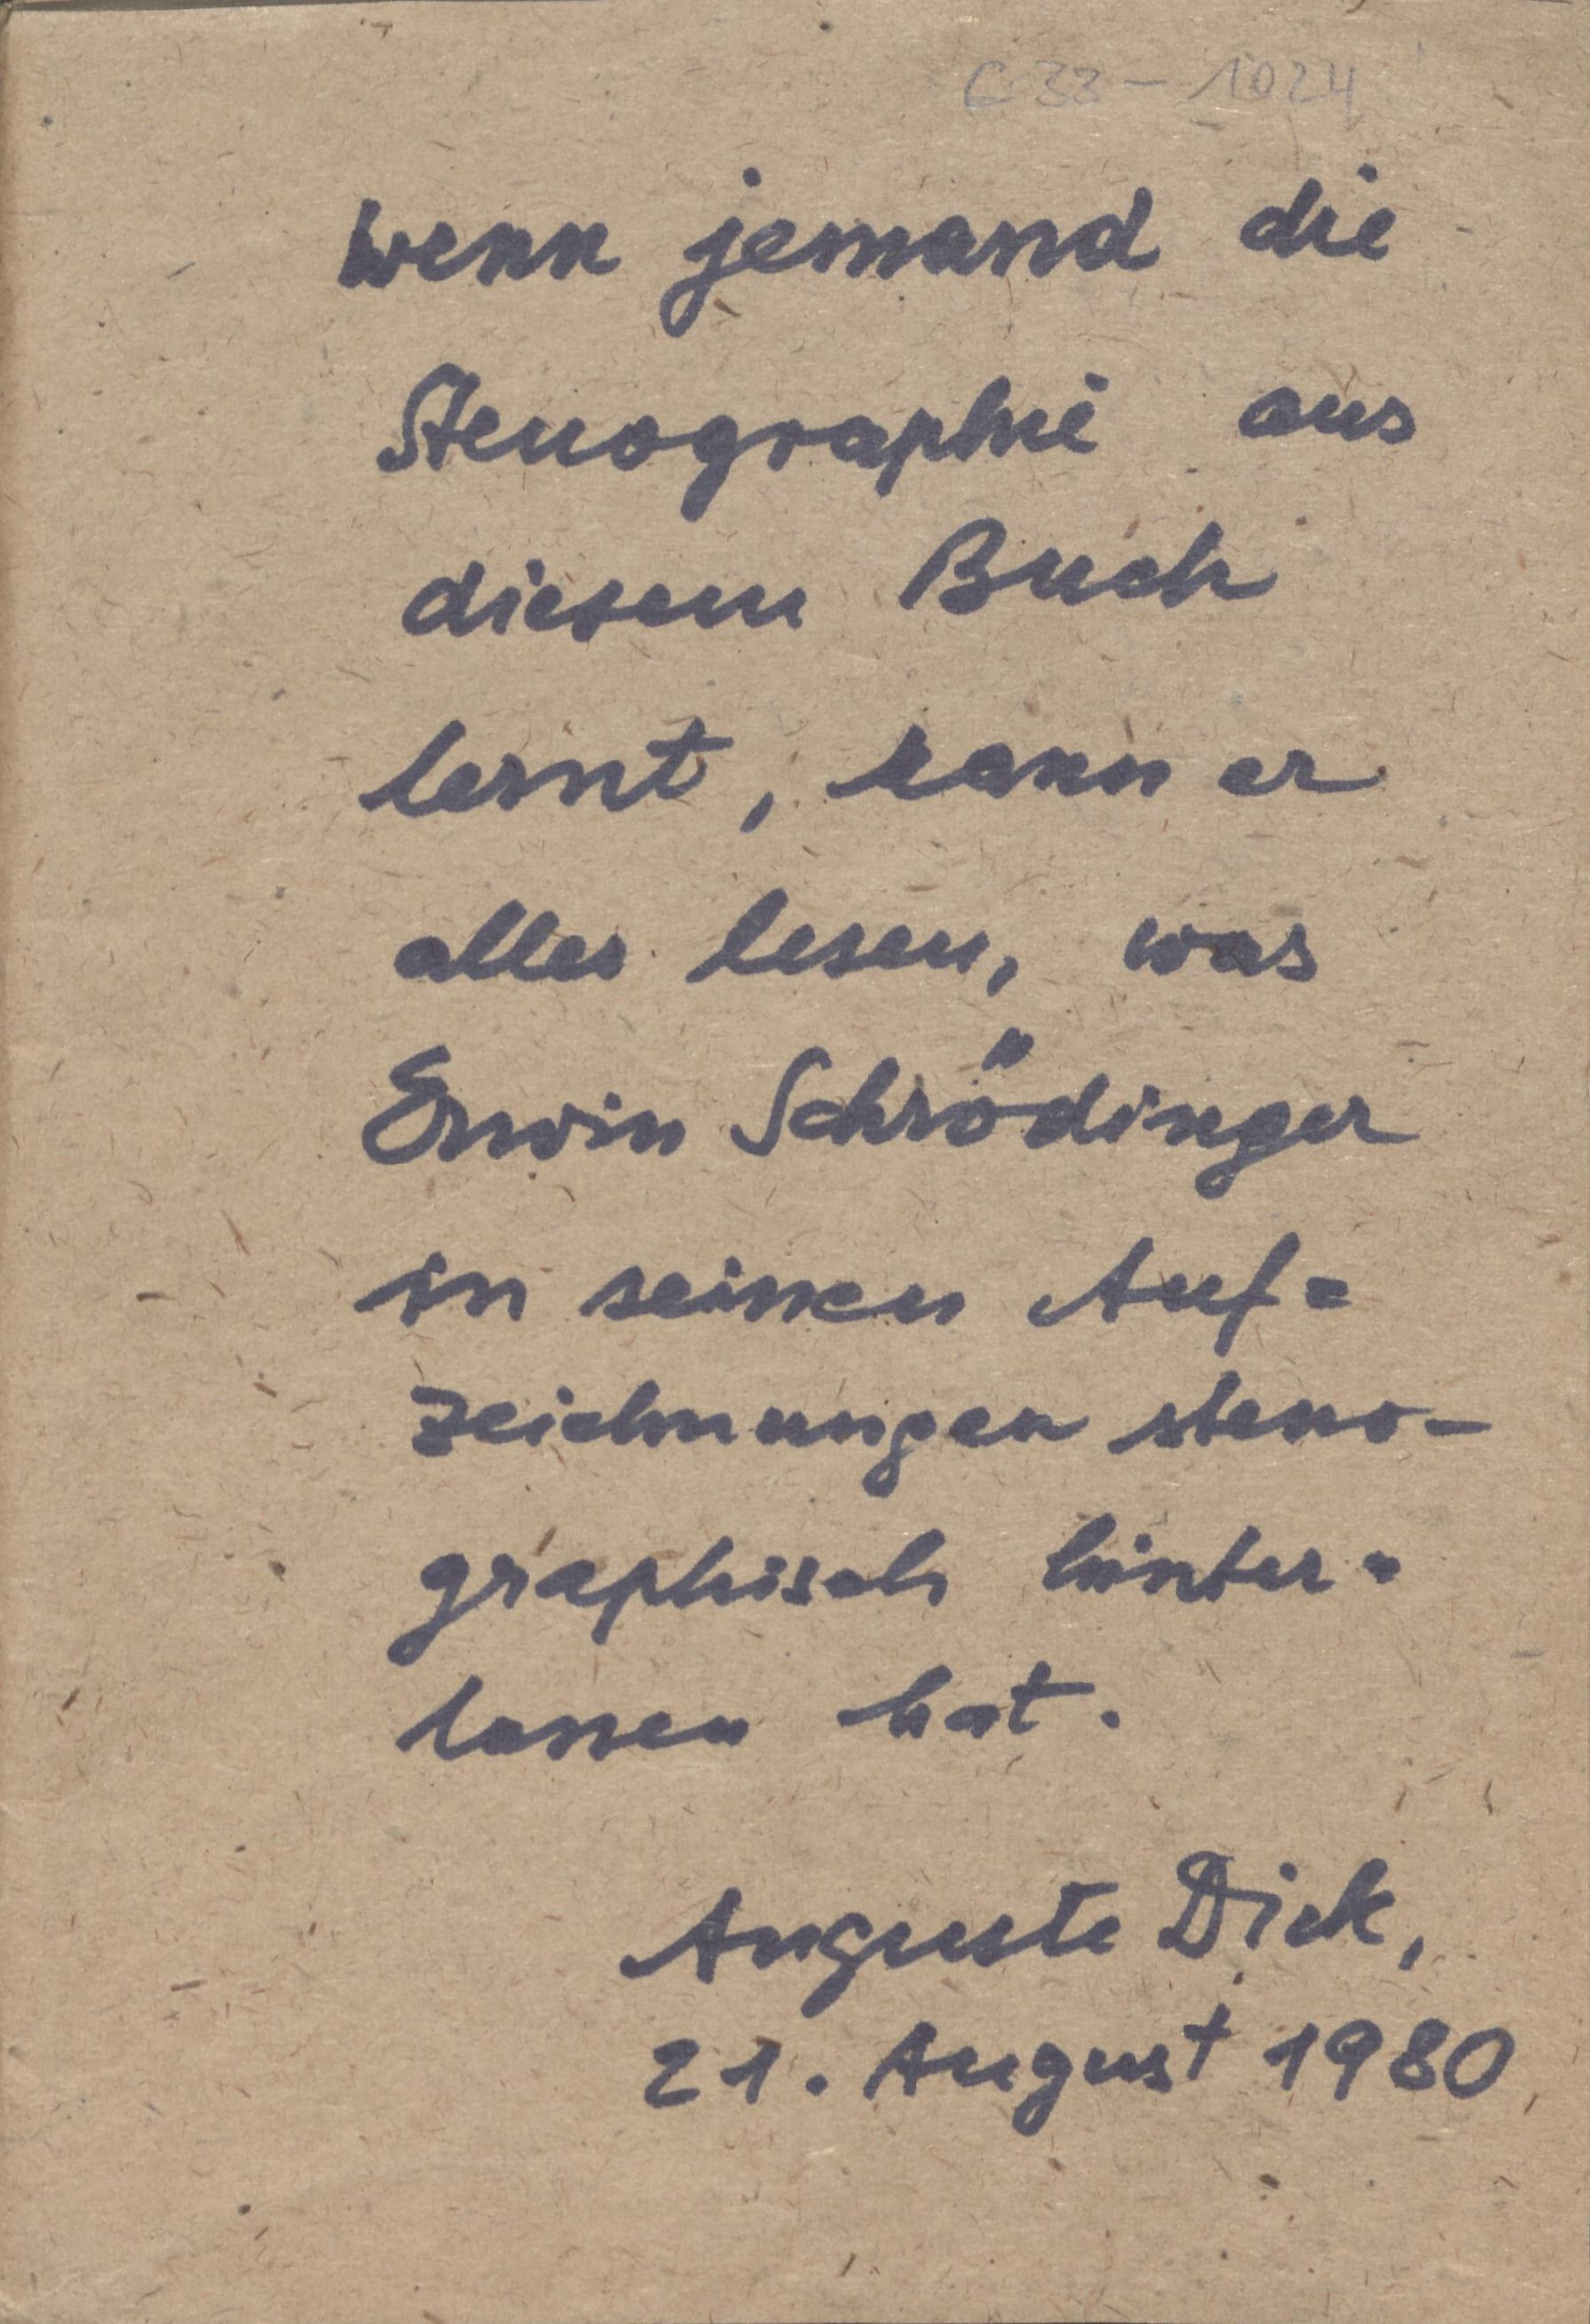 C 33 – 1024
Wenn jemand die
Stenographie aus
diesem Buch
lernt, kann er
alles lesen, was
Erwin Schrödinger
in seinen Auf=
zeichnungen steno-
graphisch hinter=
lassen hat.
Auguste Dick,
21. August 1980